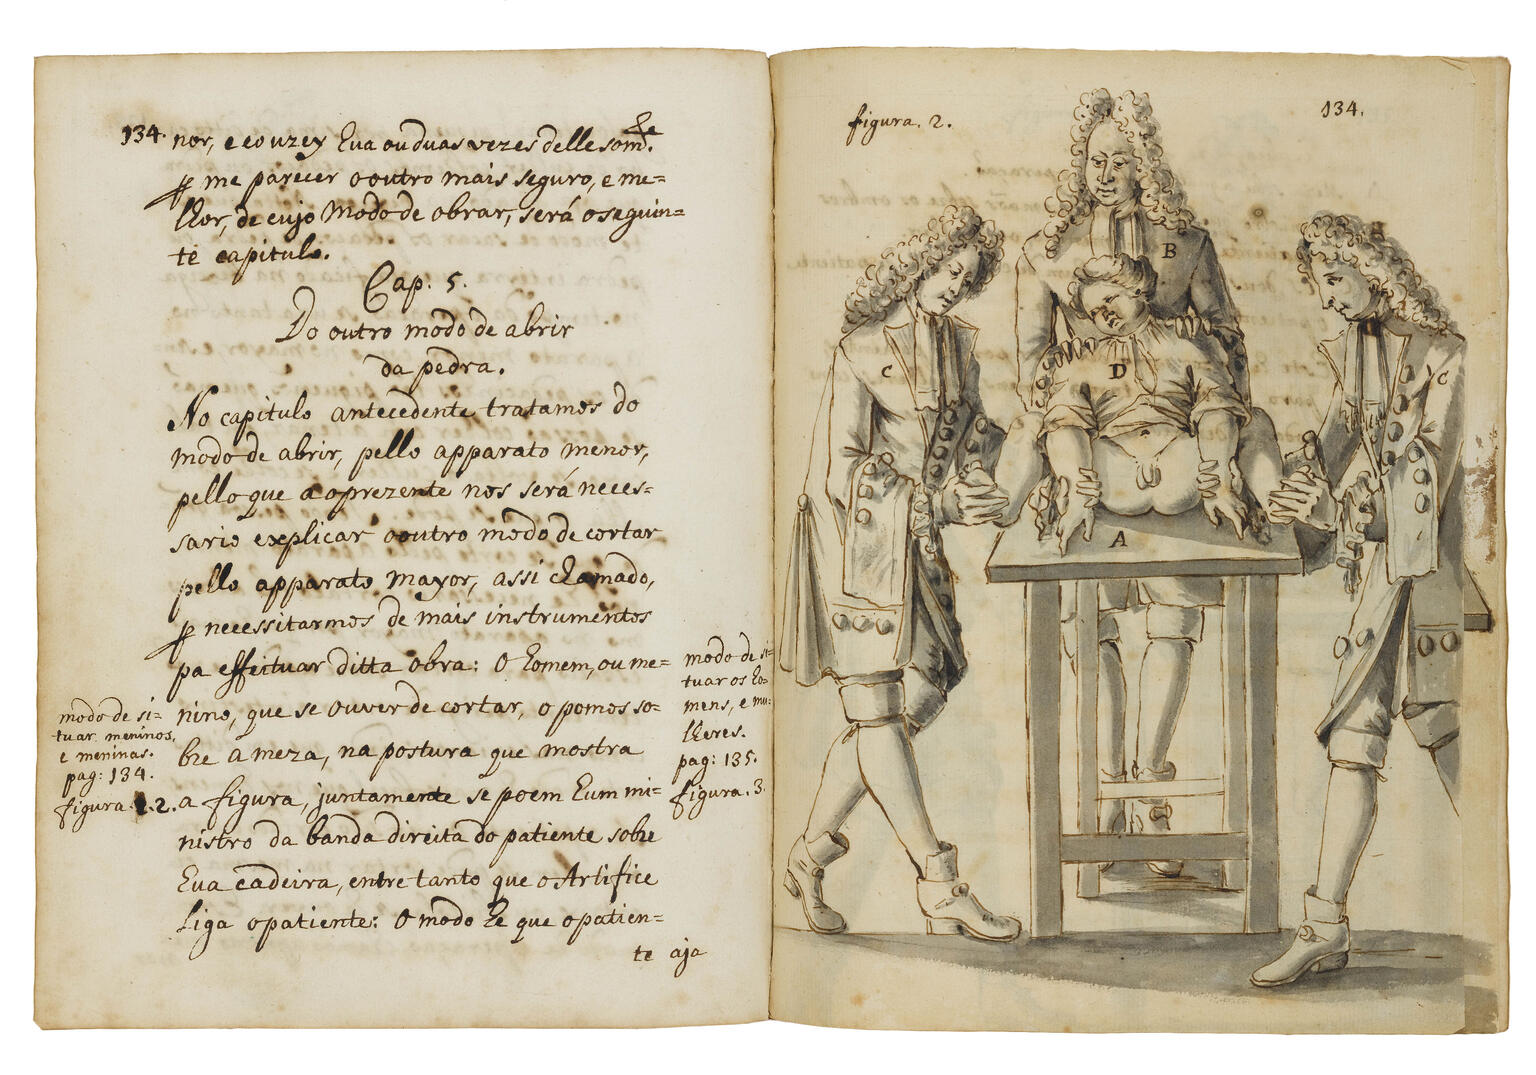 134. nor, e eo uzey hua ou duas vezes delle som.te
p me parecer o outro mais seguro, e me=
lhor, de cujo modo de obrar, será o seguin=
te capitulo.
Cap. 5.
Do outro modo de abrir
da pedra.
No capitulo antecedente tratamos do
modo de abrir, pello apparato menor,
pello que a o prezente nos será neces=
sario explicar o outro modo de cortar
pello apparato mayor, assi chamado,
p necessitarmos de mais instrumentos
pa effectuar ditta obra: O homem, ou me=
nino, que se ouver de cortar, o pomos so=
bre a meza, na postura que mostra
a figura, juntamente se poem hum mi=
nistro da banda direita do patiente sobre
hua cadeira, entre tanto que o Artifice
liga o patiente: O modo he que o patien=
te aja
modo de si=
tuar meninos,
e meninas.
pag: 134.
figura. 2.
modo de si=
tuar os ho=
mens, e mu=
lheres.
pag: 135.
figura. 3.
figura. 2.
134.
B
C
D
C
A